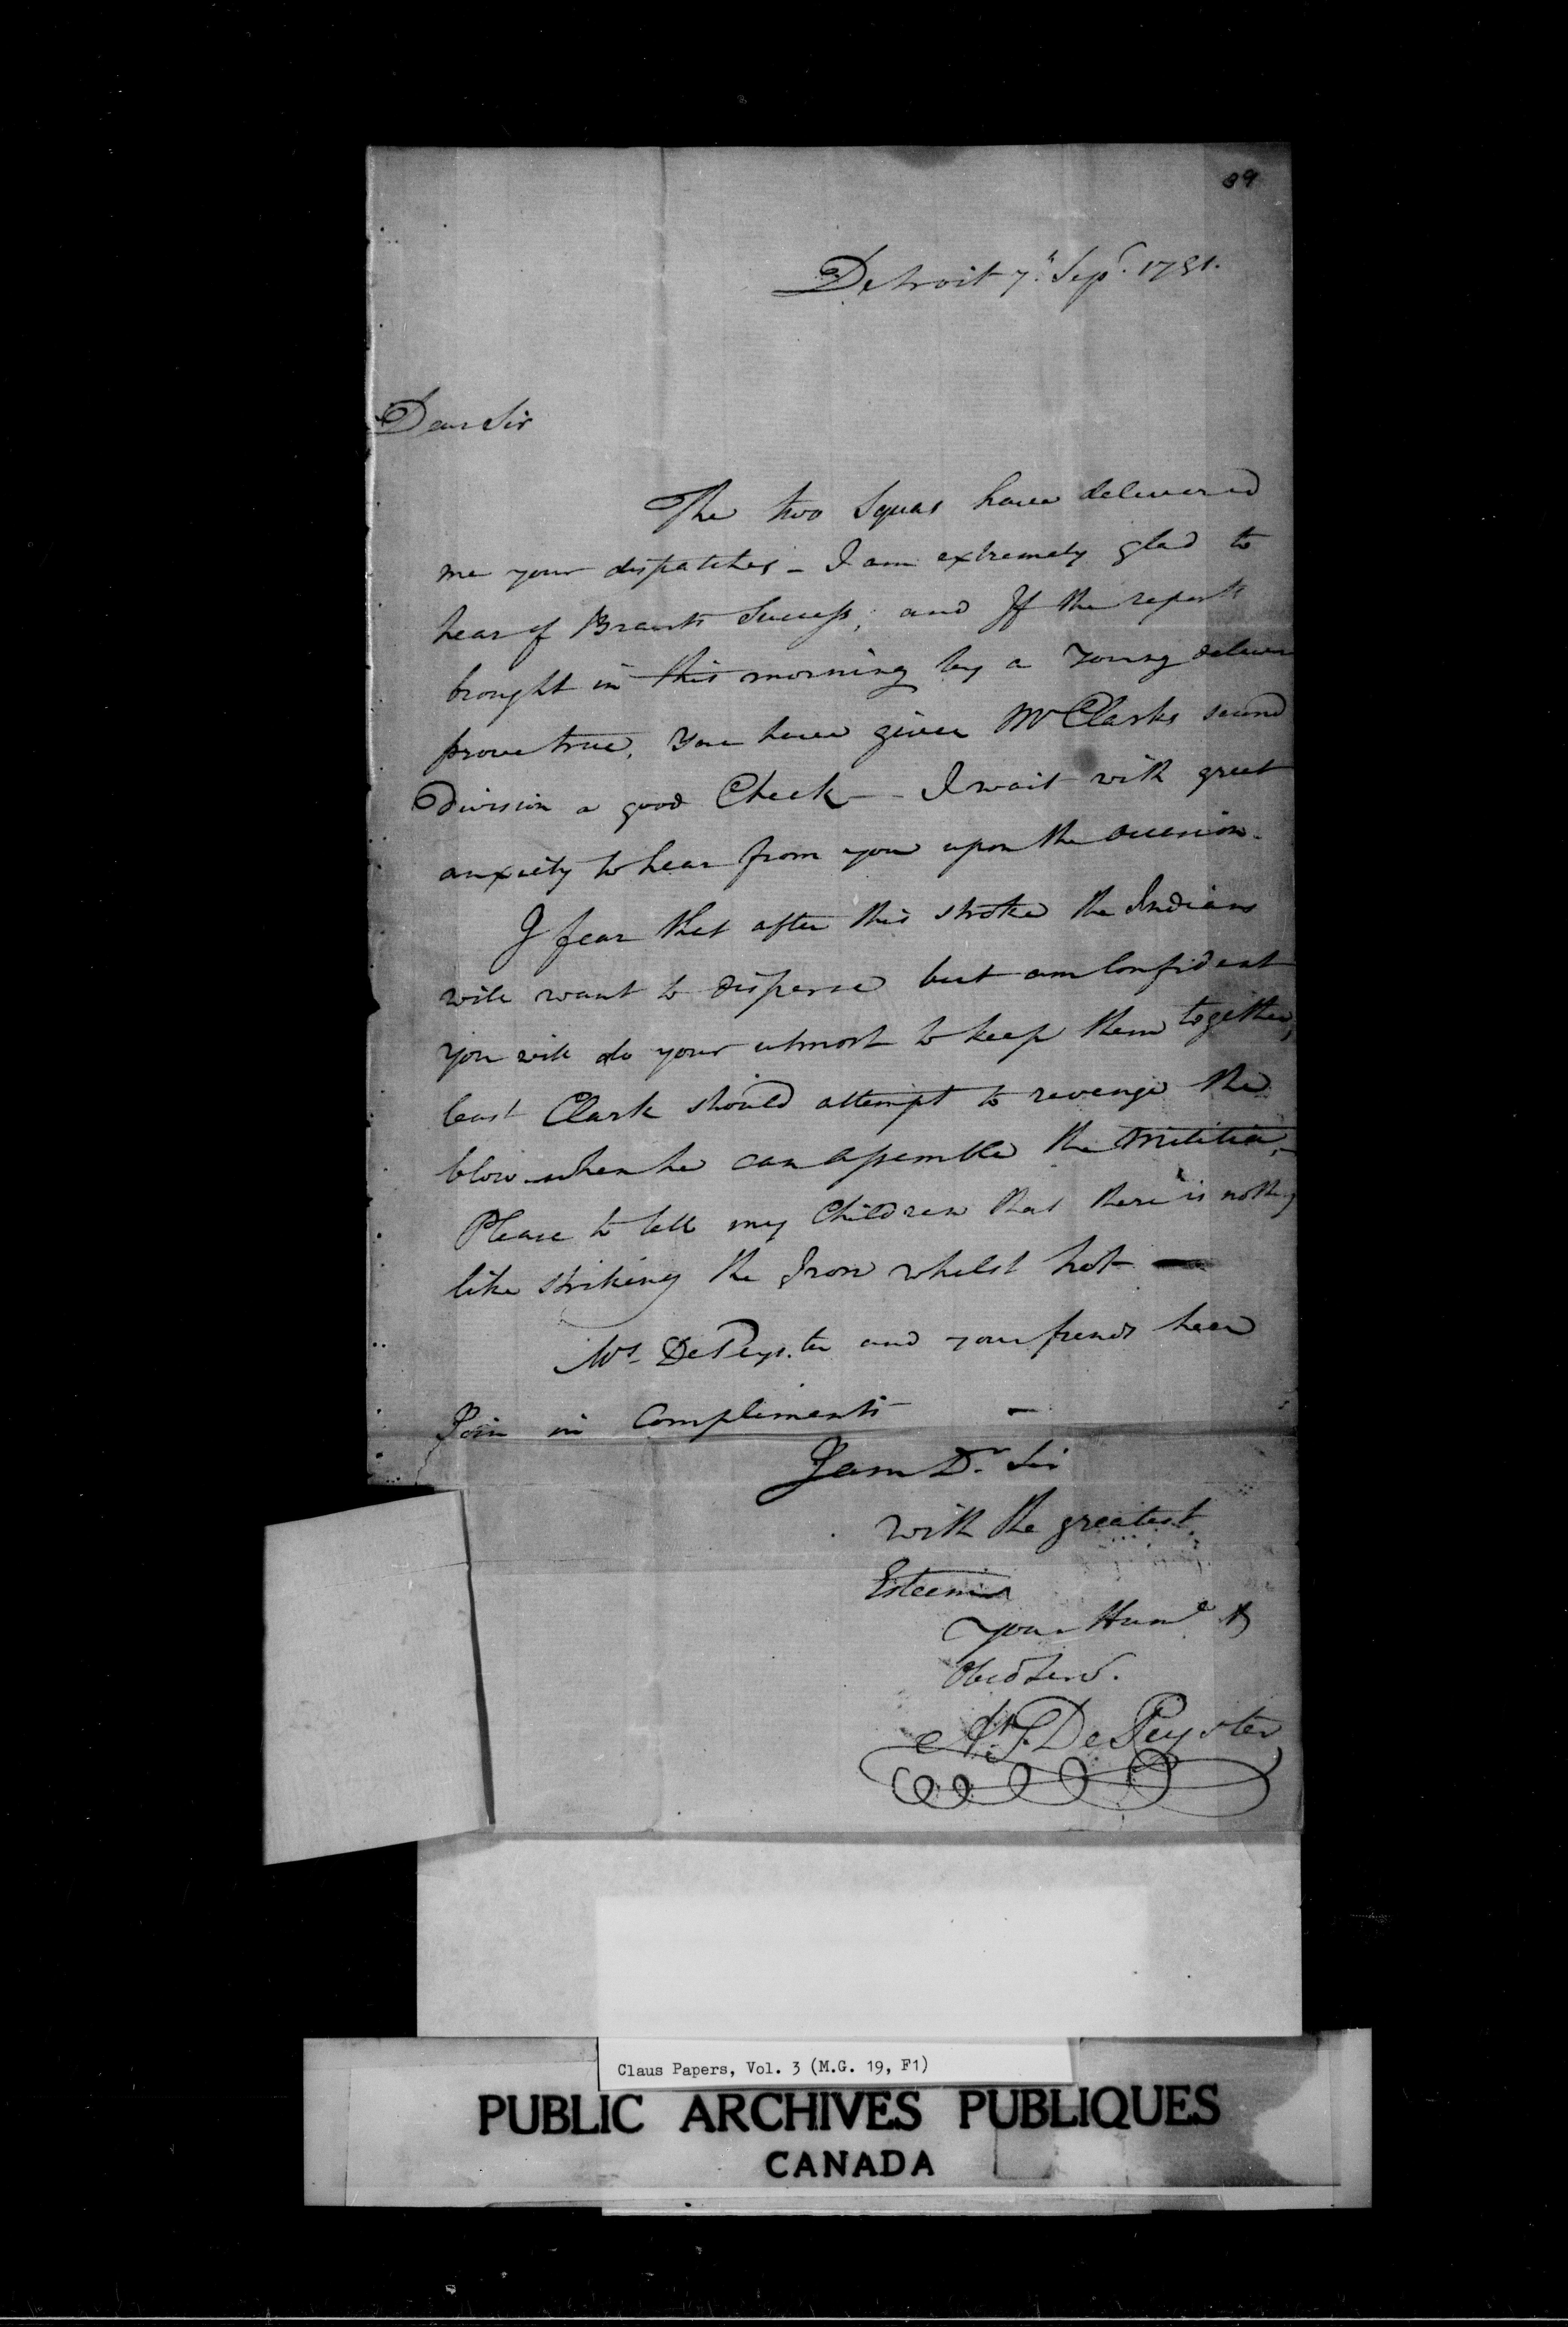 89
Detroit 7th Sepr. 1781.
Dear Sir
The two Squas have delivered
me your dispatches - I am extremely glad to
hear of Brants Success, and If the reports
brought in this morning by a Young delawar
prove true. You have given Mr Clarks second
Division a good Check - I wait with great
anxiety to hear from you upon the occasion.
I fear that after this stroke the Indians
will want to disperse but am Confident
you will do your utmost to keep them together,
least Clark should attempt to revenge the
blow when he can assemble the Militia,-
Please to tell my Children that there is nothing
like striking the Iron whilst hot -
Mrs. DePeyster and your friends here
Join in Compliments -
I am Dr. Sir
with the greatest
Esteem
your Humle &
Obed Serv.
At. S. DePeyster
Claus Papers, Vol. 3 (M.G. 19, F1)
PUBLIC ARCHIVES PUBLIQUES
CANADA